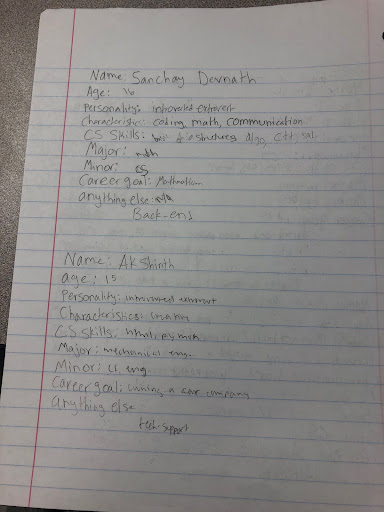 Name: Sanchay Devnath
Age: 16
Personality: introverted extrovert
Characteristic: coding, math, communication
CS Skills: data structures, Algo, C++, sql
Major: math
Minor: CS
Career goal: Mathmatician
anything else: n/a
Back-end
Name: Akshinth
age: 15
Personality: introverted extrovert
Characteristics: creative
CS Skills: html, python
Major: mechanical eng.
Minor: eng
Career goal: owning a car company
anything else
tech-support